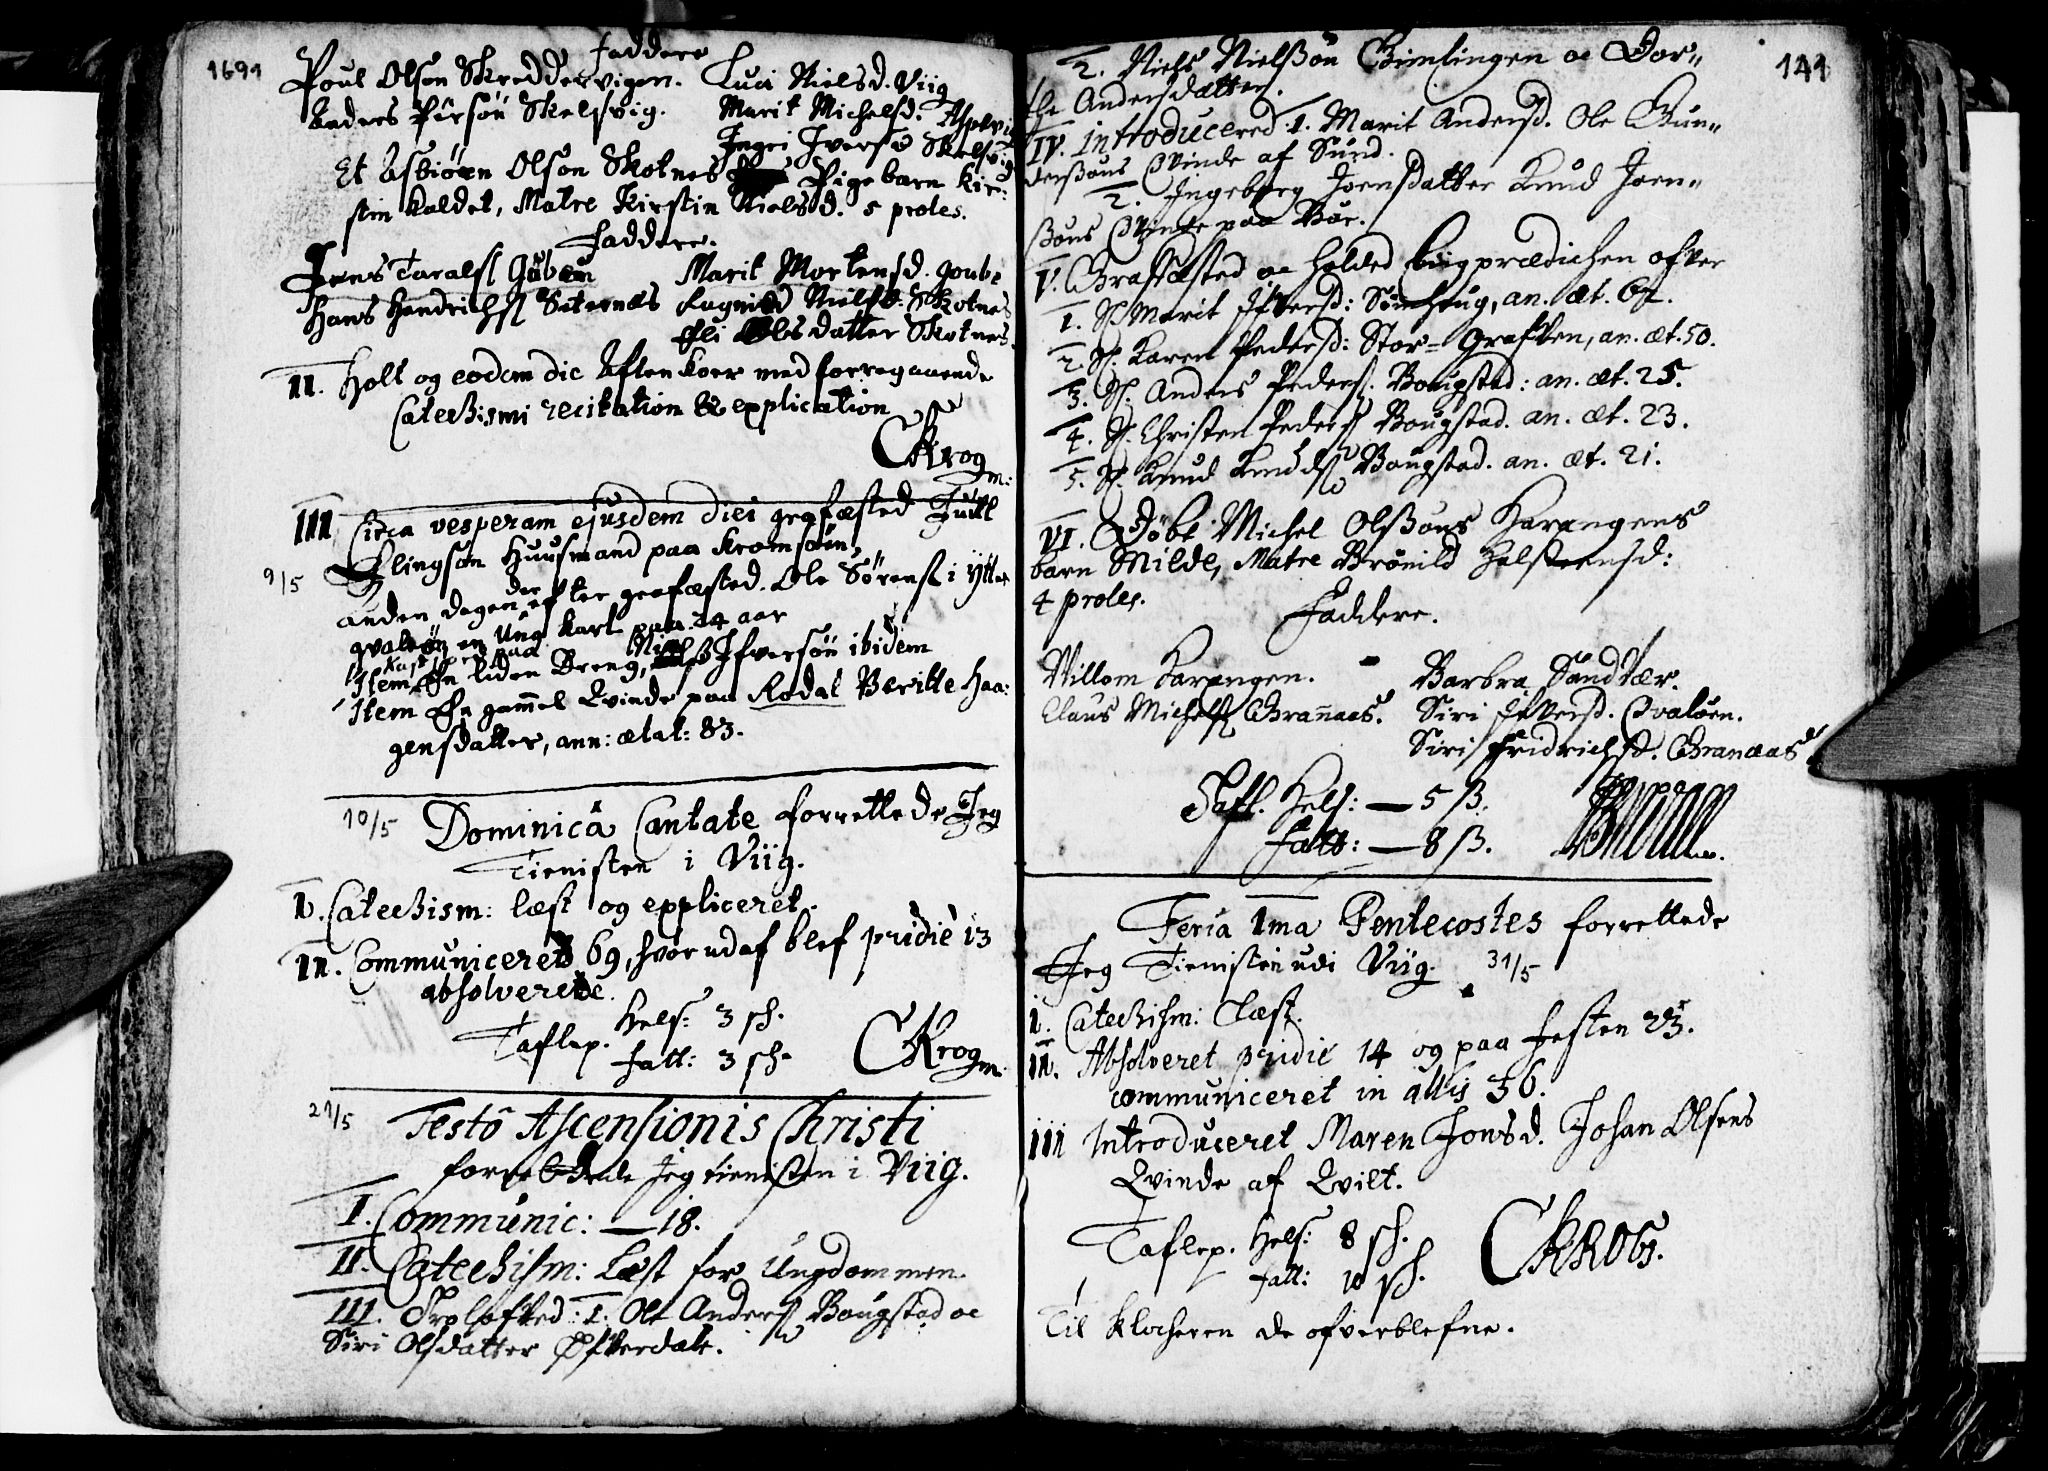 1691
Faddere
Poul Olson Skreddervigen. Luci Nielsd. Viig
Anders Pörsön Skelsvig. Marit Michelsd. Aspevi
Ingri Iversd Skelsvig
Et Asbiörn Olson Skotnes Pigebarn Kir:
stin kaldet, Matre Kirstin Nielsd. 5 proles.
Faddere.
Jens Taralss Marit Mortensd. goube
Hans Hendrichss Seternæs Ragnild Nielsd: Skotnes
Eli Olsdatter Skotnes.
II. Holt og eodem die Aften Koer med forregaaende
Catechismi recitation & explication
CKrog
m:
III Circa vesperam ejusdem diei grafæsted Juel
Elingson Huusmand paa Kromsöin,
9/5
anden dagen der efter grafæsted. Ole Sörens i Ytter
qvalöin en Ung Karl paa 24 aar
Item En liden Dreng, Niels Ifversön ibidem
Item En gammel Qvinde paa Rodal Beritte Haa:
gensdatter, ann: ætat: 83.
10/5 Dominicâ Cantate forrettede Jeg
Tienisten i Viig.
I. Catechism: læst og expliceret.
II. Communicered 69, hvorudaf blef pridie 13
absolverede.
Taflep. Hels: 3 sh.
fatt: 3 sh.
CKrog
m.
21/5 Festô Ascensionis Christi
forrettede Jeg tienisten i Viig.
I. Communic: — 18.
II. Catechism: Læst for Ungdommen.
III. Trolofved: 1. Ole Anderss Bougstad oc
Siri Olsdatter Öfverdale.
141
2. Niels Nielssön Gimlingen oc Dor„
the Andersdatter.
IV. introducered: 1. Marit Andersd. Ole Gun„
derssöns Qvinde af Sund.
2. Ingeborg Joensdatter Knud Joen„
ssöns Qvinde paa Böe.
V. Grafsæsted oc holded liigprædichen ofver
1. Sl Marit Ifversd: Sömhoug, an. æt. 62.
2. Sl. Karen Pedersd: Stor= Grafven, an. æt. 50.
3. Sl. Anders Peders. Bougstad: an. æt. 25.
4. Sl. Christen Peders Bougstad. an. æt. 23.
5. Sl. Knud Knudss Bougstad. an. æt. 21.
VI. Döbt Michel Olssöns Karangens
barn Milde, Matre Brönild Halsteensd:
4 proles.
Faddere.
Willom Karangen. Barbra Sandvær.
Claus Michelss Grannæs. Siri Ifversd. Qvalöen.
Siri Fridrichsd. Granæs
Tafl. Hels: — 5 ß.
Fatt: — 8 ß.
Feria 1ma Pentecostes forrettede
Jeg Tienisten udi Viig. 31/5
I. Catechism: Læst.
II. Absolveret pridie 14 og paa Festen 23.
communiceret in allis 36.
III Introduceret Maren Jonsd. Johan Olsens
Qvinde af Qvilt.
Taflep. Hels: 8 sh.
fatt: 10 sh.
CKROG.
Til klocheren de ofverblefne.